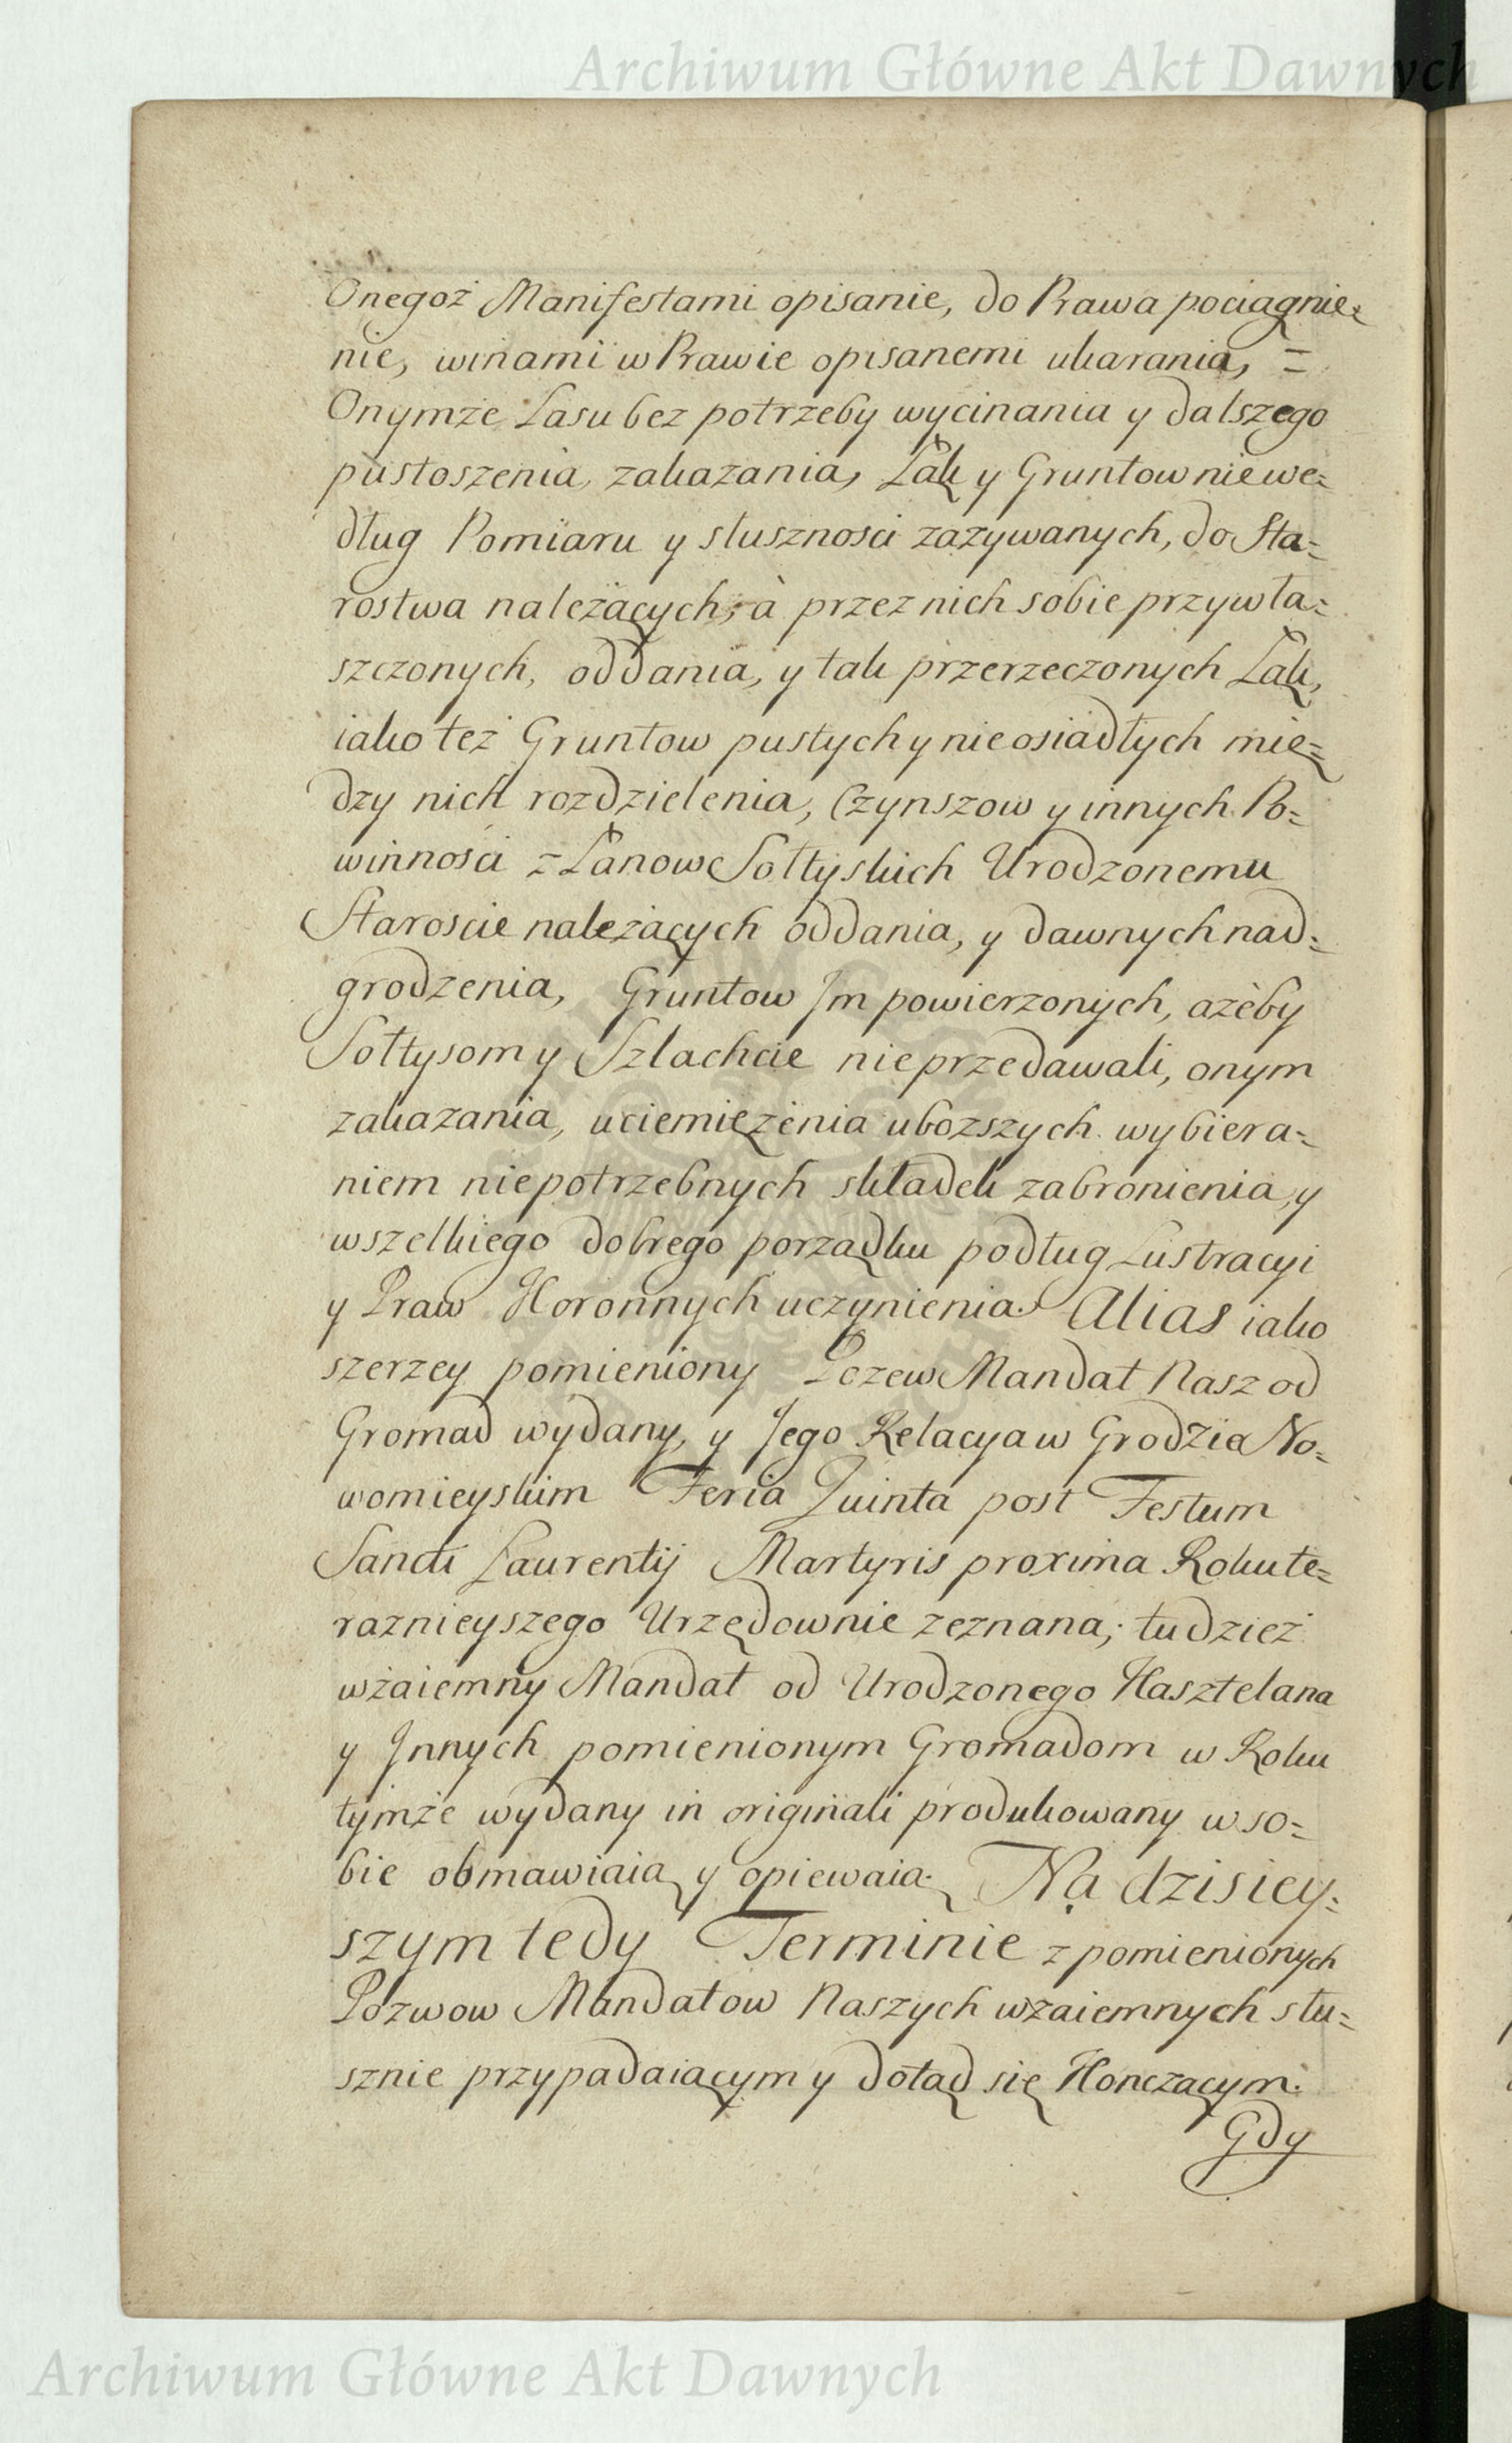 Archiwum Główne Akt Dawnych
Onegoż Manifestami opisanie, do Prawa pociągnie=
nie, winami w Prawie opisanemi ukarania, =
Onymże Lasu bez potrzeby wycinania y dalszego
pustoszenia, zakazania, Łąk y Gruntow nie we=
dług Pomiaru y słusznosci zazywanych, do Sta=
rostwa należących, à przez nich sobie przywła=
szczonych, oddania, y tak przerzeczonych Łąk,
iako też Gruntow pustych y nieosiadłych mię=
dzy nich rozdzielenia, Czynszow y innych Po=
winnosci z Łanow Sołtyskich Urodzonemu
Staroscie należących oddania, y dawnych nad=
grodzenia, Gruntow Jm powierzonych, ażeby
Sołtysom y Szlachcie nie przedawali, onym
zakazania, uciemiężenia uboższych wybiera=
niem niepotrzebnych składek zabronienia, y
wszelkiego dobrego porządku podług Lustracyi
y Praw Koronnych uczynienia. Alias iako
szerzey pomieniony Pozew Mandat Nasz od
Gromad wydany, y Jego Relacya w Grodzie No=
womieyskim Feria Quinta post Festum
Sancti Laurentij Martyris proxima Roku te=
raznieyszego Urzędownie zeznana; tudzież
wzaiemny Mandat od Urodzonego Kasztelana
y Jnnych pomienionym Gromadom w Roku
tymże wydany in originali produkowany w so=
bie obmawiaią y opiewaią. Na dzisiey=
szym tedy Terminie z pomienionych
Pozwow Mandatow Naszych wzaiemnych słu=
sznie przypadaiącym y dotąd się Kończącym.
Gdy
Archiwum Główne Akt Dawnych